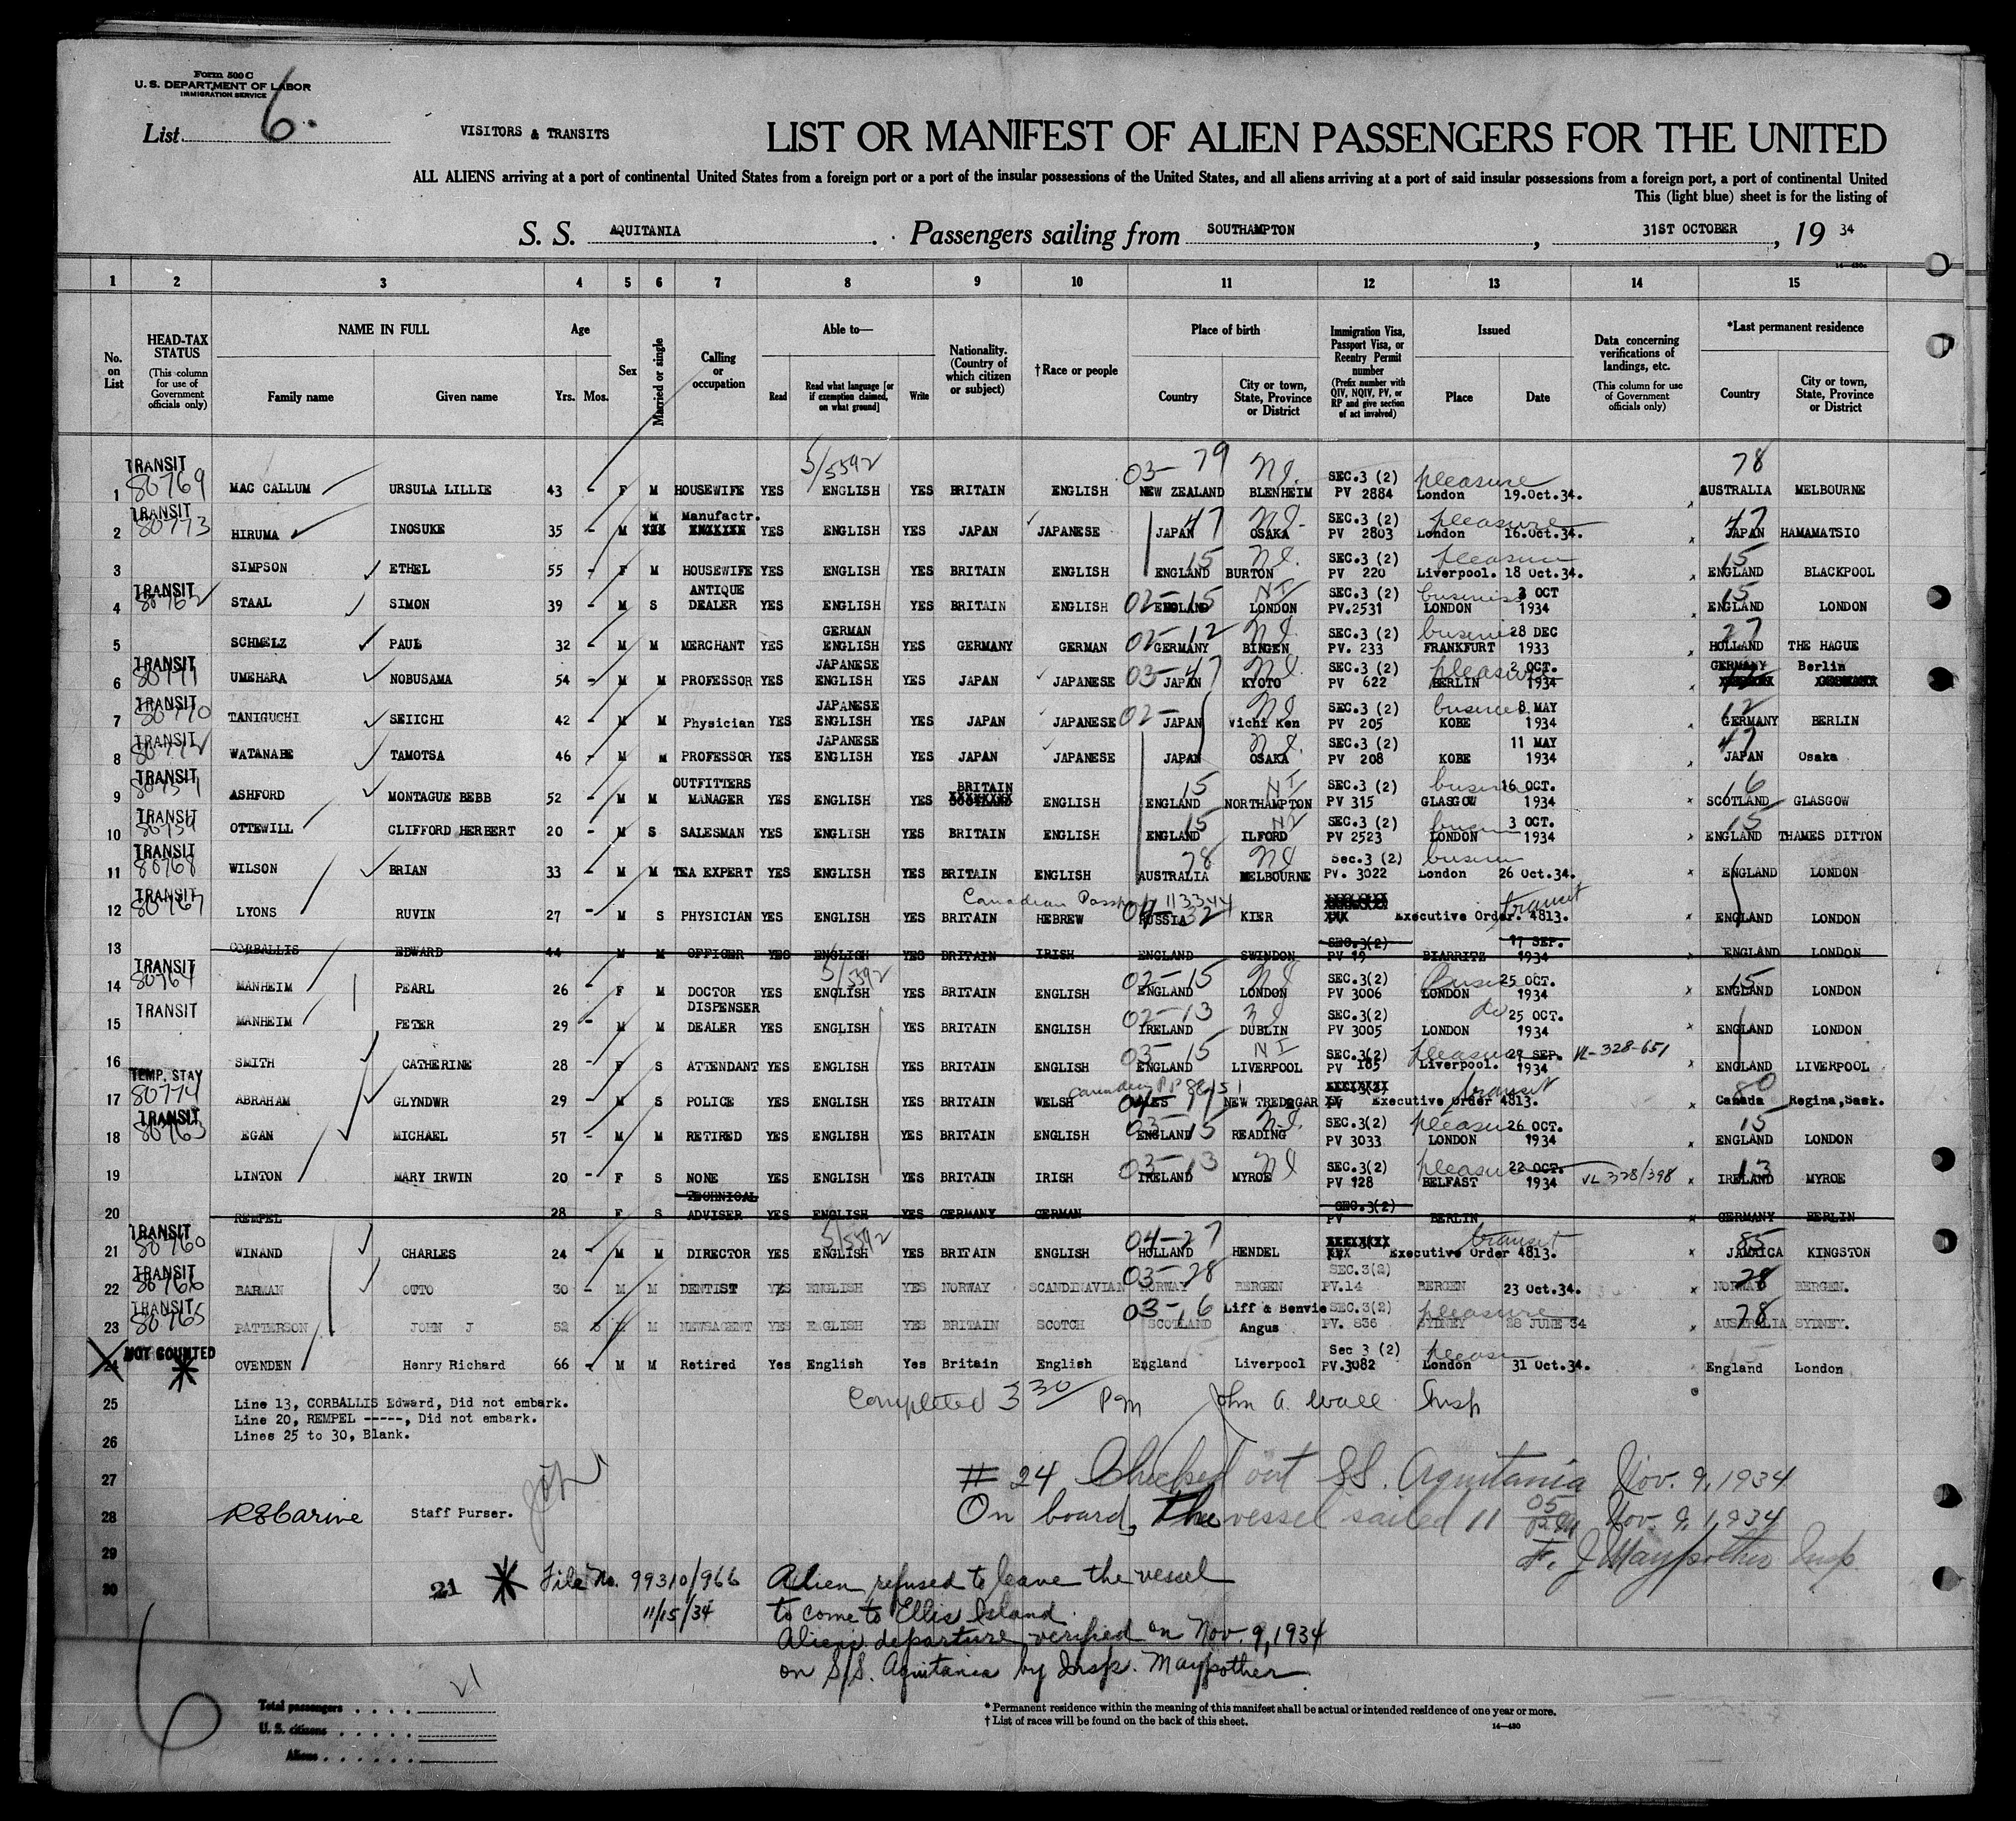 Form 500 C
U. S. DEPARTMENT OF LABOR
IMMIGRATION SERVICE
List 6.
VISITORS & TRANSITS
LIST OR MANIFEST OF ALIEN PASSENGERS FOR THE UNITED
ALL ALIENS arriving at a port of continental United States from a foreign port or a port of the insular possessions of the United States, and all aliens arriving at a port of said insular possessions from a foreign port, a port of continental United
This (light blue) sheet is for the listing of
S. S. AQUITANIA. Passengers sailing from SOUTHAMPTON, 31ST OCTOBER, 19 34
14—430
1 2 3 4 5 6 7 8 9 10 11 12 13 14 15
No. on List
HEAD-TAX STATUS (This column for use of Government officials only)
NAME IN FULL Family name Given name
Age Yrs. Mos.
Sex
Married or single
Calling or occupation
Able to— Read Read what language [or if exemption claimed, on what ground] Write
Nationality. (Country of which citizen or subject)
†Race or people
Place of birth Country City or town, State, Province or District
Immigration Visa, Passport Visa, or Reentry Permit number (Prefix number with QIV, NQIV, PV, or RP and give section of act involved)
Issued Place Date
Data concerning verifications of landings, etc. (This column for use of Government officials only)
*Last permanent residence Country City or town, State, Province or District
TRANSIT 5/5592 03- 79 N.I. SEC.3 (2) pleasure 78
1 80769 MAC CALLUM URSULA LILLIE 43 - F M HOUSEWIFE YES ENGLISH YES BRITAIN ENGLISH NEW ZEALAND BLENHEIM PV 2884 London 19.Oct.34. AUSTRALIA MELBOURNE
TRANSIT M Manufactr. 47 N.I. SEC.3 (2) pleasure 47
2 80773 HIRUMA INOSUKE 35 - M YES ENGLISH YES JAPAN JAPANESE JAPAN OSAKA PV 2803 London 16.Oct.34. JAPAN HAMAMATSIO
15 N.I. SEC.3 (2) pleasure 15
3 SIMPSON ETHEL 55 - F M HOUSEWIFE YES ENGLISH YES BRITAIN ENGLISH ENGLAND BURTON PV 220 Liverpool. 18 Oct.34. ENGLAND BLACKPOOL
TRANSIT ANTIQUE NI SEC.3 (2) business 3 OCT 15
4 80762 STAAL SIMON 39 - M S DEALER YES ENGLISH YES BRITAIN ENGLISH 02-15 ENGLAND LONDON PV.2531 LONDON 1934 ENGLAND LONDON
GERMAN N.I. SEC.3 (2) business 28 DEC 27
5 SCHMELZ PAUL 32 - M M MERCHANT YES ENGLISH YES GERMANY GERMAN 02-12 GERMANY BINGEN PV. 233 FRANKFURT 1933 HOLLAND THE HAGUE
TRANSIT JAPANESE 03-47 N.I. SEC.3 (2) pleasure 2 OCT. GERMANY Berlin
6 80771 UMEHARA NOBUSAMA 54 - M M PROFESSOR YES ENGLISH YES JAPAN JAPANESE JAPAN KYOTO PV 622 BERLIN 1934
TRANSIT JAPANESE N.I. SEC.3 (2) business 8 MAY 12
7 80770 TANIGUCHI SEIICHI 42 - M M Physician YES ENGLISH YES JAPAN JAPANESE 02- JAPAN Vichi Ken PV 205 KOBE 1934 GERMANY BERLIN
TRANSIT JAPANESE N.I. SEC.3 (2) 11 MAY 47
8 80772 WATANABE TAMOTSA 46 - M M PROFESSOR YES ENGLISH YES JAPAN JAPANESE JAPAN OSAKA PV 208 KOBE 1934 JAPAN Osaka
TRANSIT OUTFITTERS BRITAIN 15 NI SEC.3 (2) business 16 OCT. 16
9 ASHFORD MONTAGUE BEBB 52 - M M MANAGER YES ENGLISH YES SCOTLAND ENGLISH ENGLAND NORTHAMPTON PV 315 GLASGOW 1934 SCOTLAND GLASGOW
TRANSIT 15 NI SEC.3 (2) 3 OCT. 15
10 80759 OTTEWILL CLIFFORD HERBERT 20 - M S SALESMAN YES ENGLISH YES BRITAIN ENGLISH ENGLAND ILFORD PV 2523 LONDON 1934 ENGLAND THAMES DITTON
TRANSIT 78 NI Sec.3 (2)
11 80768 WILSON BRIAN 33 - M M TEA EXPERT YES ENGLISH YES BRITAIN ENGLISH AUSTRALIA MELBOURNE PV. 3022 London 26 Oct.34. ENGLAND LONDON
TRANSIT Canadian Passport 113344 transit
12 80767 LYONS RUVIN 27 - M S PHYSICIAN YES ENGLISH YES BRITAIN HEBREW RUSSIA 32 KIER Executive Order. 4813. ENGLAND LONDON
SEC.3(2) 17 SEP.
13 CORBALLIS EDWARD 44 M M OFFICER YES ENGLISH YES BRITAIN IRISH ENGLAND SWINDON PV 19 BIARRITZ 1934 ENGLAND LONDON
TRANSIT 5/5592 02-15 N.I. SEC.3(2) Business 25 OCT. 15
14 80761 MANHEIM PEARL 26 - F M DOCTOR YES ENGLISH YES BRITAIN ENGLISH ENGLAND LONDON PV 3006 LONDON 1934 ENGLAND LONDON
TRANSIT DISPENSER 02-13 SEC.3(2) do 25 OCT.
15 MANHEIM PETER 29 - M M DEALER YES ENGLISH YES BRITAIN ENGLISH IRELAND DUBLIN PV 3005 LONDON 1934 ENGLAND LONDON
03- 15 NI SEC.3(2) pleasure 29 SEP. VL-328-651
16 SMITH CATHERINE 28 - F S ATTENDANT YES ENGLISH YES BRITAIN ENGLISH ENGLAND LIVERPOOL PV 185 Liverpool. 1934 ENGLAND LIVERPOOL
TEMP. STAY transit 80
17 80774 ABRAHAM GLYNDWR 29 - M S POLICE YES ENGLISH YES BRITAIN WELSH WALES NEW TREDEGAR Executive Order 4813. Canada Regina,Sask.
TRANSIT 03- 15 N.I. SEC.3(2) pleasure 26 OCT. 15
18 80763 EGAN MICHAEL 57 - M M RETIRED YES ENGLISH YES BRITAIN ENGLISH ENGLAND READING PV 3033 LONDON 1934 ENGLAND LONDON
03- 13 NI SEC.3(2) pleasure 22 OCT. VL 328/398 13
19 LINTON MARY IRWIN 20 - F S NONE YES ENGLISH YES BRITAIN IRISH IRELAND MYROE PV 128 BELFAST 1934 IRELAND MYROE
TECHNICAL SEC.3(2)
20 REMPEL 28 F S ADVISER YES ENGLISH YES GERMANY GERMAN PV BERLIN GERMANY BERLIN
TRANSIT 5/5592 04-27 transit 85
21 80760 WINAND CHARLES 24 - M M DIRECTOR YES ENGLISH YES BRITAIN ENGLISH HOLLAND HENDEL Executive Order 4813. JAMAICA KINGSTON
TRANSIT 03-28 SEC.3(2) 28
22 80766 BARMAN OTTO 30 - M M DENTIST YES ENGLISH YES NORWAY SCANDINAVIAN NORWAY BERGEN PV.14 BERGEN 23 Oct.34. NORWAY BERGEN.
TRANSIT 03-16 Liff & Benvie SEC.3(2) pleasure 78
23 80765 PATTERSON JOHN J 52 M M NEWSAGENT YES ENGLISH YES BRITAIN SCOTCH SCOTLAND Angus PV. 836 SYDNEY 28 JUNE 34 AUSTRALIA SYDNEY.
NOT COUNTED Sec 3 (2)
24 OVENDEN Henry Richard 66 - M M Retired Yes English Yes Britain English England Liverpool PV.3082 London 31 Oct.34. England London
25 Line 13, CORBALLIS Edward, Did not embark. Completed 3 30 PM John A. Wall Insp
Line 20, REMPEL -----, Did not embark.
26 Lines 25 to 30, Blank.
27 # 24 Checked out SS. Aquitania Nov. 9, 1934
28 Staff Purser. On board, The vessel sailed 11 05 PM Nov. 9, 1934
29 Insp.
30 21 * File No. 99310/966 Alien refused to leave the vessel
11/15/34 to come to Ellis Island.
Aliens departure verified on Nov. 9, 1934
on S/S. Aquitania by Insp. Maypother
6
Total passengers . . . .
U. S. citizens . . . . .
Aliens . . . . . .
*Permanent residence within the meaning of this manifest shall be actual or intended residence of one year or more.
†List of races will be found on the back of this sheet.
14—430